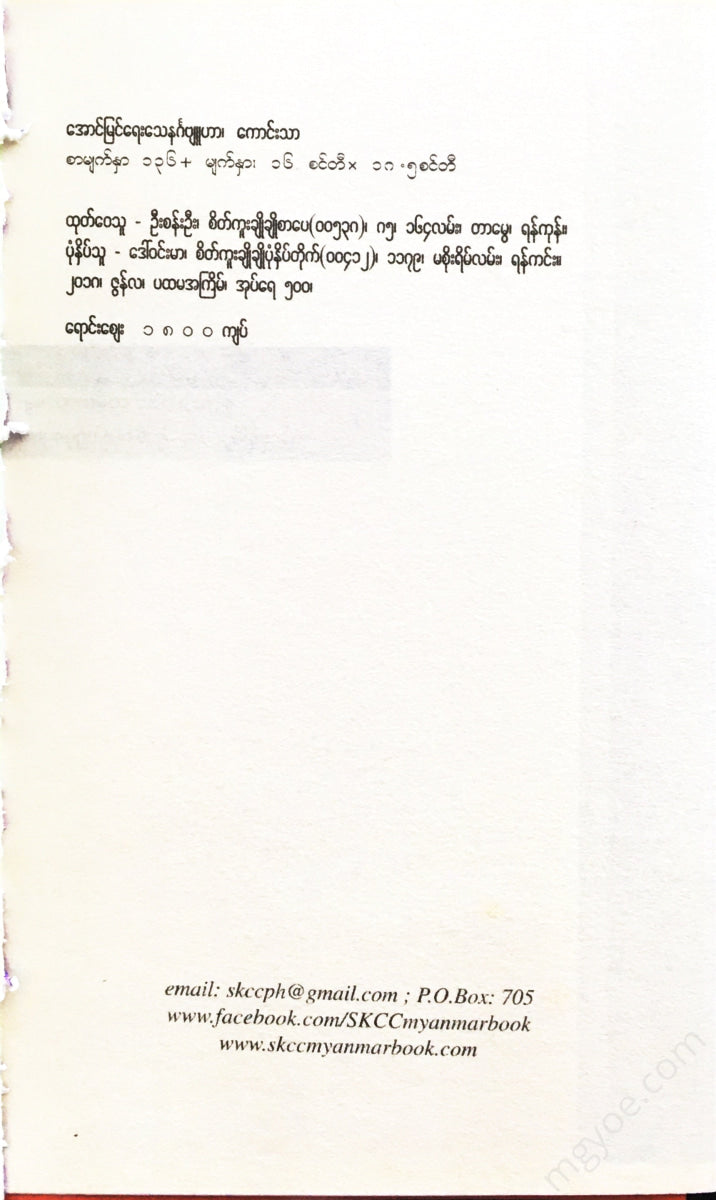 အောင်မြင်ရေးသေနင်္ဂဗျူဟာ၊ ကောင်းသာ
စာမျက်နှာ ၁၃၆ + မျက်နှာ၊ ၁၆ စင်တီ × ၁၈.၅စင်တီ
ထုတ်ဝေသူ - ဦးစန်းဦး၊ စိတ်ကူးချိုချိုစာပေ(၀၀၅၃၈)၊ ၈၅၊ ၁၆၄လမ်း၊ တာမွေ၊ ရန်ကုန်။
ပုံနှိပ်သူ - ဒေါ်ဝင်းမာ၊ စိတ်ကူးချိုချိုပုံနှိပ်တိုက်(၀၀၄၁၂)၊ ၁၁၇၉၊ မစိုးရိမ်လမ်း၊ ရန်ကင်း။
၂၀၁၈၊ ဇွန်လ၊ ပထမအကြိမ်၊ အုပ်ရေ ၅၀၀၊
ရောင်းဈေး ၁ ၈ ၀ ၀ ကျပ်
email: skccph@gmail.com ; P.O.Box: 705
www.facebook.com/SKCCmyanmarbook
www.skccmyanmarbook.com
mgyoe.com